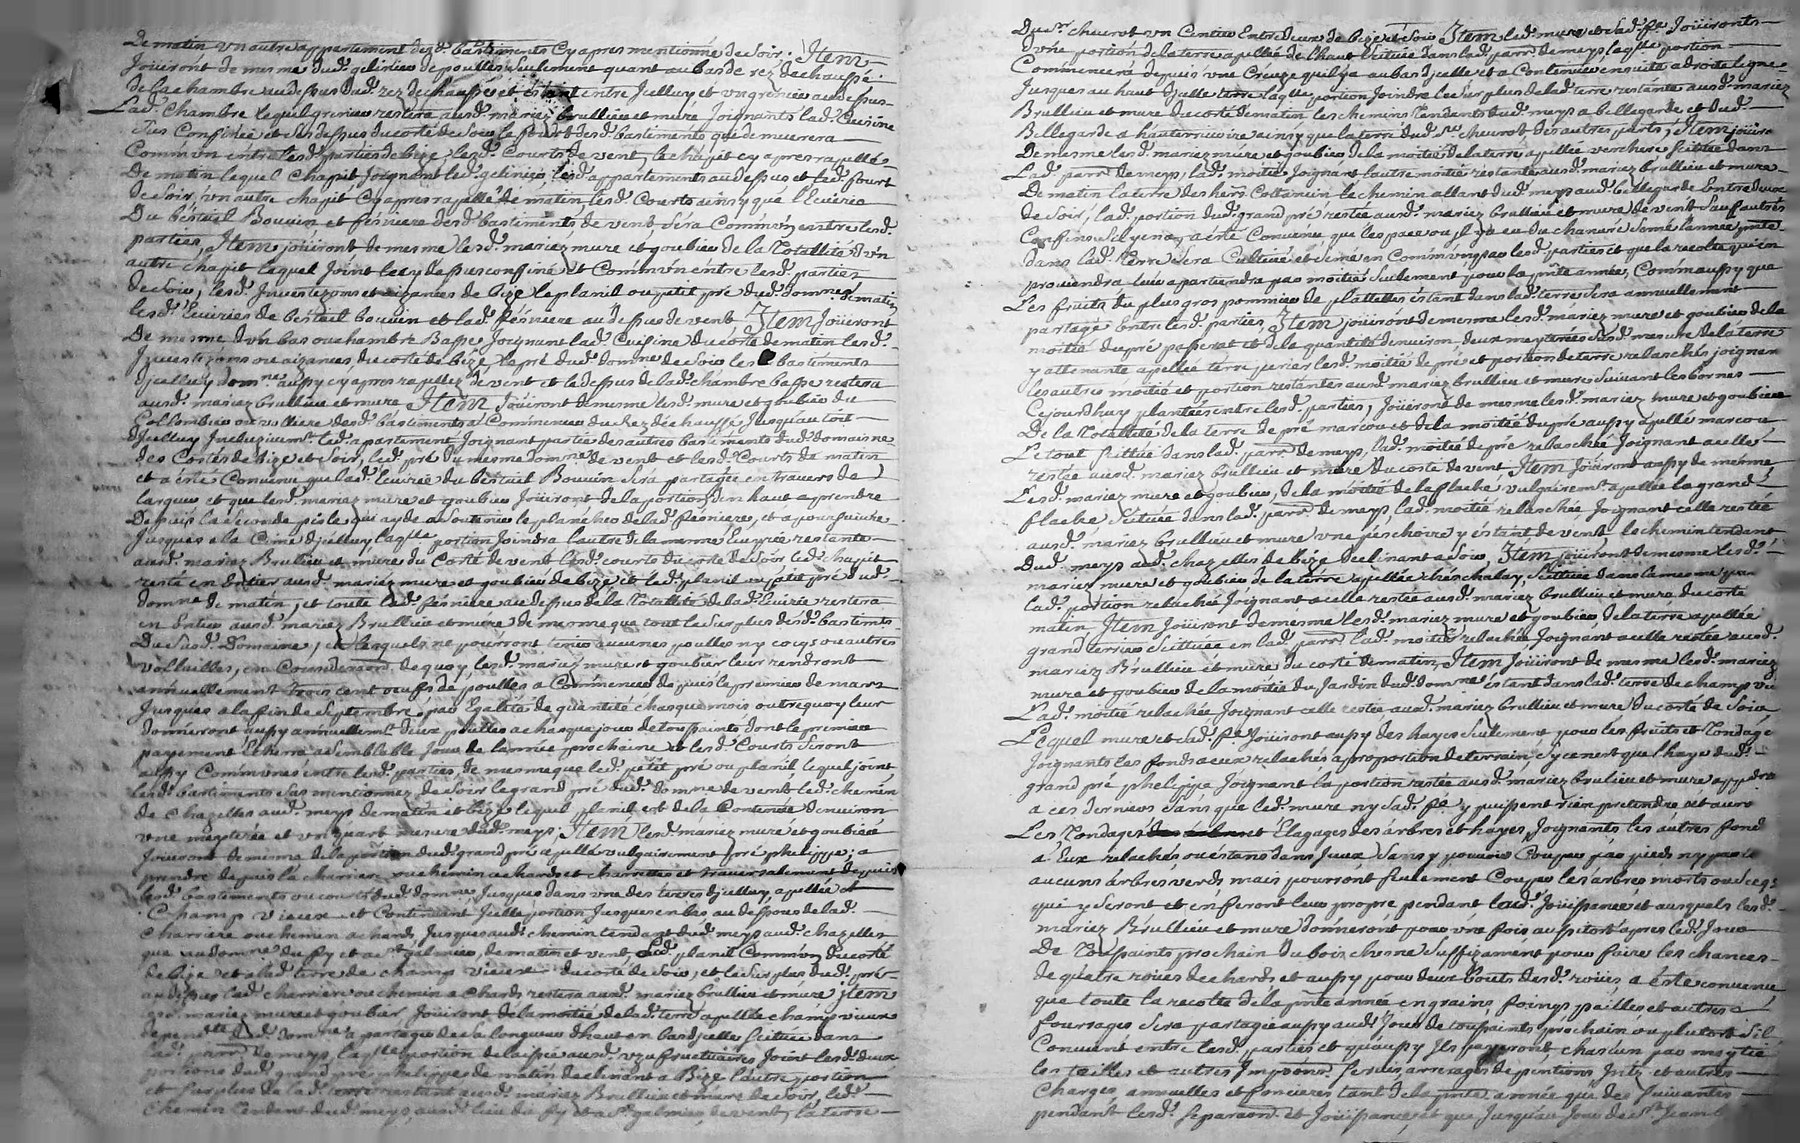 De matin un autre appartement desd. bastiments cy apres mentionné de soir. Item
Joüiront de mesme dud. gelinier de poulles seulement quant au bas de rez de chaussé
de la chambre au dessus dud. rez de chaussé et estant entre Jcelluy et un grenier au dessus
Lad. chambre lequel grenier restera ausd. mariez Brullieu et mure Joignants lad. cuisine
sus confinée et au dessus du corté de soir le fourt desd. bastiments qui demurera
Commun entre lesd. parties de bize lesd. Courts de vent, le chapit cy apres rapellé
De matin lequel Chapit Joignent led. gelinier, lesd. appartements au dessus et led. fourt
de soir, un autre chapit cy apres rapellé de matin, lesd. Courts ainsy que l'Ecurie
Du béstail Bouvin et féniere desd. bastiments de vent, sera Commun entre lesd.
parties, Item joüiront de mesme lesd. mariez mure et goubier de la Totallité d'un
autre chapit lequel Joint lecy dessus confiné et Commun entre lesd. parties
de soir, lesd. Jnvestizons et aizances de bize le planil ou petit pré dud. domne. de matin
lesd. Ecuries de béstail bouvin et lad. fésniere au dessus de vent Item Joüiront
De mesme d'un bas ou chambre Basse Joignant lad. Cuisine du corté de matin lesd.
Jnvestizons ou aizances, du corté de bize, le pré dud. domne. de soir les bastiments
djcelluy domne. aussy cy apres rapellez de vent et le dessus de lad. chambre basse restera
ausd. mariez Brullieu et mure Item Joüiront de mesme lesd. mure et goubier du
Collombier ou volliere desd. bastiments a Commencer du Rez de chaussé Jusqu'au toit
Djcelluy Jnclusivemt. led. apartement Joignant partie des autres bastiments dud. domaine
des Cortés de bize et soir, led. pré du mesme domne. de vent et lesd. Courts de matin
et a été Convenu que lad. Ecurie du béstail Bouvin sera partagée en travers de
largeur et que lesd. mariez mure et goubier Joüiront de la portion d'en haut a prendre
Depuis la seconde pisle qui ayde a soutenir le plancher de lad. fésniere, et a poursuivre
Jusques a la Cime djcelluy laqlle. portion Joindra l'autre de la mesme Ecurie restante
ausd. mariez Brullieu et mure du Corté de vent lesd. courts du corté de soir led. chapit
resté en Entier ausd. mariez mure et goubier de bize et led. planil ou petit pré dud.
domne. de matin, et toute lad. fésniere au dessus de la Totallité de lad. Ecurie restera
en Entier ausd. mariez Brullieu et mure de mesme que tout le surplus desd. bastimts.
Du susd. Domaine, lesquels ne pourront tenir aucunes poulles ny cocqs ou autres
vollailles, de quoy lesd. mariez mure et goubier leur rendront
annuellement trois cent oeuffs de poulles a Commencer depuis le premier de mars
Jusques a la fin de septembre, par Egalité de quantité chasque mois outre quoy leur
donneront aussy annuellemt. deux poulles a chasque jour de toussaints dont le premier
payement Echerra a semblable Jour de l'année prochaine et lesd. Courts seront
aussy Communes entre lesd. parties, de mesme que led. petit pré ou planil lequel joint
lesd. bastiments sus mentionnez de soir le grand pré dud. domne. de vent led. chemin
de Chazelles aud. meys de matin et bize lequel planil est de la Contenue d'environ
une meyterée et un quart mesure dud. meys; Item lesd. mariez mure et goubier
Joüiront de mesme de la portion dud. grand pré apellé vulgairement pré phelippe; a
prendre depuis la charriere ou chemin a chards et charrettes et traversalement depuis
lesd. bastiments ou courts dud. domne. Jusques dans une des terres djcelluy, apellée et
Champ vieux et Contenant Jcelle portion Jusques en bas au dessous de lad.
Charriere ou chemin a chards Jusques aud. chemin tendant dud. meys aud. chazelles
que au domne. du fy et a st. galmier, de matin et vent, led. planil Commun du corté
de bize et a lad. terre de champ vieux du corté de soir, et le surplus dud. pré
au dessus lad. charriere ou chemin a chards restera ausd. mariez brullieu et mure item
lesd. mariez mure et goubier Joüiront de la moitié de lad. terre apellée champ vieux
dépendte. dud. domne. a partager de sa longueur d'haut en bas djcelle scituée dans
lad. parr. de meys, laqlle. portion delaissée ausd. uzufructuaires Joint lesd. deux
portions dud. grand pré phelippe de matin declinant a Bize l'autre portion
et surplus de lad. terre restant ausd. mariez Brullieu et mure de soir, led.
chemin tendant dud. meys, ausd. lieu du fy et a st. galmier, de vent, la terre
Du sr. cheurot un Centier Entre deux de bize et soir Item led. mure et sad. fe. Joüiront
d'une portion de la terre apellée de l'haut scituée dans lad. parr. de meys laqlle. portion
Commencera depuis une Creuze quil y a au bas djcelle et a Continuer en suite a droite ligne
Jusques au haut djcelle terre laqlle. portion Joindra le surplus de lad. terre restante ausd. mariez
Brullieu et mure du corté de matin les chemins tendants dud. meys a bellegarde et dud.
Bellegarde a hauterivoire ainsy que la terre dud. sr. cheurot des autres parts, Item joüiront
De mesme lesd. mariez mure et goubier de la moitié de la terre apellée verchere scituée dans
Lad. parr. de meys, lad. moitié Joignant l'autre moitié restante ausd. mariez brullieu et mure
De matin la terre des hers Costancin le chemin allant dud. meys aud. bellegarde Entre deux
de soir, lad. portion dud. grand pré restée ausd. mariez brullieu et mure de vent sauf autres
Confins sil y en a, a été Convenu que les parties ou il y a eu du chanvre semé l'année pnte
dans lad. terre sera Cultivé et semé en Commun par lesd. parties et que la recolte qui en
proviendra leur apartiendra par moitié seulement pour la pnte année, Comm'aussy que
Les fruits du plus gros pommier de plattelles éstant dans lad. terre sera annuellement
partagé Entre lesd. parties, Item joüiront de mesme lesd. mariez mure et goubier de la
moitié du pré passerat et de la quantité d'environ deux meyterées susd. mesure de la terre
y attenante apellée terre perier lesd. moitié de pré et portion de terre relaschés joignent
les autres moitié et portion restantes ausd. mariez brullieu et mure suivant les bornes
Cejourd'huy plantées entre lesd. parties, Joüiront de mesme lesd. mariez mure et goubier
De la Totallité de la terre de pré marcou et de la moitié du pré aussy apellé marcou,
Le tout scittué dans lad. parr. de meys, lad. moitié de pré relaschée Joignant a celle
restée ausd. mariez brullieu et mure du corté de vent Item Joüiront aussy de mesme
Lesd. mariez mure et goubier, de la moitié de la flache, vulgairemt. apellée la grand
flache scituée dans lad. parr. de meys, lad. moitié relaschée Joignant celle restée
ausd. mariez brullieu et mure une peschoire y estant de vent le chemin tendant
Dud. meys aud. chazelles de bize declinant a soir, Item joüiront de mesme lesd.
mariez mure et goubier de la terre apellée chés chalay, scittuée dans la mesme parr.
lad. portion relachée Joignant a celle restée ausd. mariez brullieu et mure du corté
matin Item Joüiront de mesme lesd. mariez mure et goubier de la terre apellée
grand terrier scittuée en lad. parr. lad. moitié relachée Joignant a celle restée ausd.
mariez Brullieu et mure du corté de matin, Item Joüiront de mesme lesd. mariez
mure et goubier de la moitié du Jardin dud. domne. estant dans lad. terre de champ vi
Lad. moitié relachée Joignant celle restée ausd. mariez brullieu et mure du corté de soir
Lequel mure et sad. fe. Joüiront aussy des hayes seulement pour les fruits et tondage
Joignants les fonds a eux relachés a proportion de terrain, sy ce n'est que l'haye dud.
grand pré phelippe Joignant la portion restée ausd. mariez brullieu et mure appdra
a ces derniers sans que led. mure ny sad. fe. y puissent rien pretendre et auront
Les Tondages et Elagages des arbres et hayes, Joignants les autres fond
a Eux relachés ou éstans dans Jceux sans y pouvoir Couper par pieds ny par
aucuns arbres verds mais pourront seulement Couper les arbres morts ou secqs
qui y seront et en feront leur propre pendant lad. Joüissance et ausquels lesd.
mariez Brullieu et mure donneront pour une fois au pitort apres led. Jour
De Toussaints prochain du bois chesne suffizament pour faire les chances
de quatre roües de chards et aussy pour deux bouts desd. roües, a été convenu
que toute la recolte de la pnte année en grains, foings, pailles et autres
fourrages sera partagée aussy aud. Jour de toussaints prochain ou plutost s'il
Convient entre lesd. parties et qu'aussy Jls payeront, chascun par moytié
les tailles et autres Jmpons. servis, arrerages de pentions Jntz. et autres
Charges, annuelles et foncieres tant de la pnte année que des suivantes
pendant lesd. separaon. et Joüissance, et que Jusqu'au Jour de st. Jean B